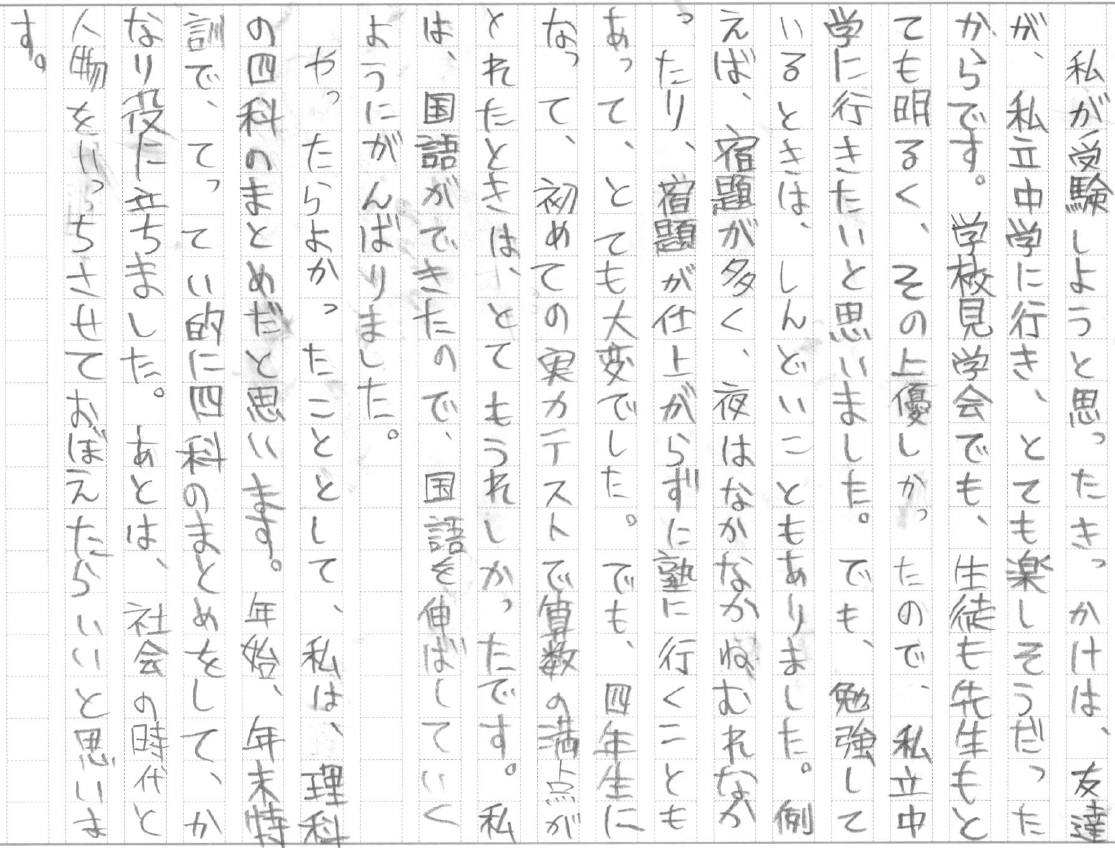 私が受験しようと思ったきっかけは、友達
が、私立中学に行き、とても楽しそうだった
からです。学校見学会でも、生徒も先生もと
ても明るく、その上優しかったので、私立中
学に行きたいと思いました。でも、勉強して
いるときは、しんどいこともありました。例
えば、宿題が多く、夜はなかなかねむれなか
ったり、宿題が仕上がらずに塾に行くことも
あって、とても大変でした。でも、四年生に
なって、初めての実力テストで算数の満点が
とれたときは、とてもうれしかったです。私
は、国語ができたので、国語を伸ばしていく
ようにがんばりました。
やったらよかったこととして、私は、理科
の四科のまとめだと思います。年始、年末特
訓で、てってい的に四科のまとめをして、か
なり役に立ちました。あとは、社会の時代と
人物をいっちさせておぼえたらいいと思いま
す。